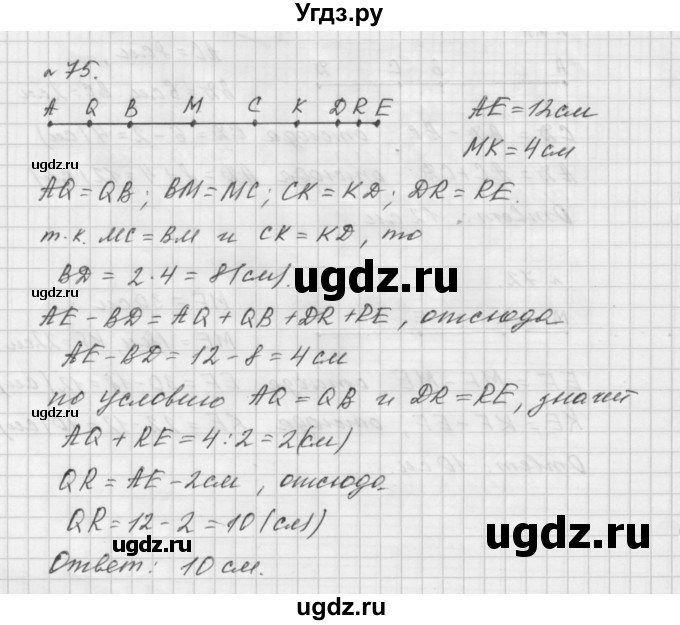 Угдз.ру
№ 75.
A Q B M C K D R E
AE = 12 см
MK = 4 см
ugdz.ru ugdz.ru
AQ = QB; BM = MC; CK = KD; DR = RE.
т.к. MC = BM и CK = KD, то
ugdz.ru
BD = 2·4 = 8(см).
ugdz.ru
AE - BD = AQ + QB + DR + RE, отсюда
AE - BD = 12 - 8 = 4 см
ugdz.ru
по условию AQ = QB и DR = RE, значит
AQ + RE = 4 : 2 = 2(см)
QR = AE - 2см, отсюда
QR = 12 - 2 = 10 (см)
ugdz.ru ugdz.ru
Ответ: 10 см.
ugdz.ru